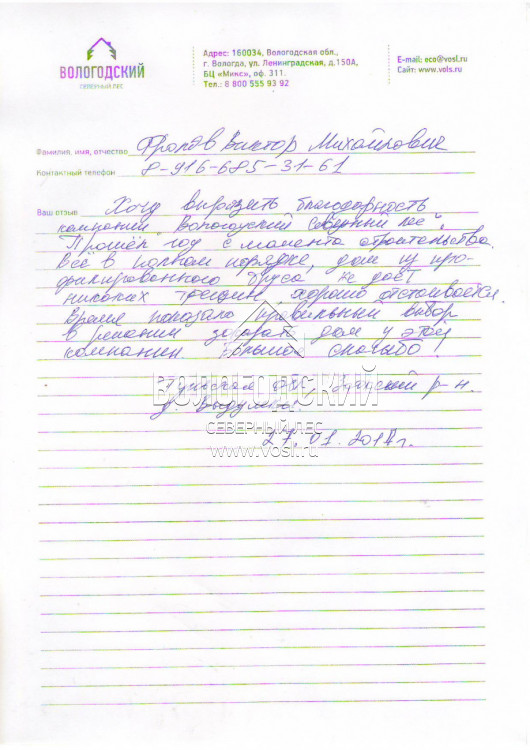 ВОЛОГОДСКИЙ
СЕВЕРНЫЙ ЛЕС
Адрес: 160034, Вологодская обл.,
г. Вологда, ул. Ленинградская, д.150А,
БЦ «Микс», оф. 311.
Тел.: 8 800 555 93 92
E-mail: eco@vosl.ru
Сайт: www.vols.ru
Фамилия, имя, отчество Фролов Виктор Михайлович
Контактный телефон 8-916-685-31-61
Ваш отзыв Хочу выразить благодарность
компании "Вологодский северный лес".
Прошёл год с момента строительства.
Всё в полном порядке, дом из про-
филированного бруса не даёт
никаких трещин, хорошо отстаивается.
Время показало правильный выбор
в решении заказать дом у этой
компании. Большое спасибо!
Тульская обл. р-н.
д.
27.01.2017г.
ВОЛОГОДСКИЙ
СЕВЕРНЫЙ ЛЕС
www.vosl.ru